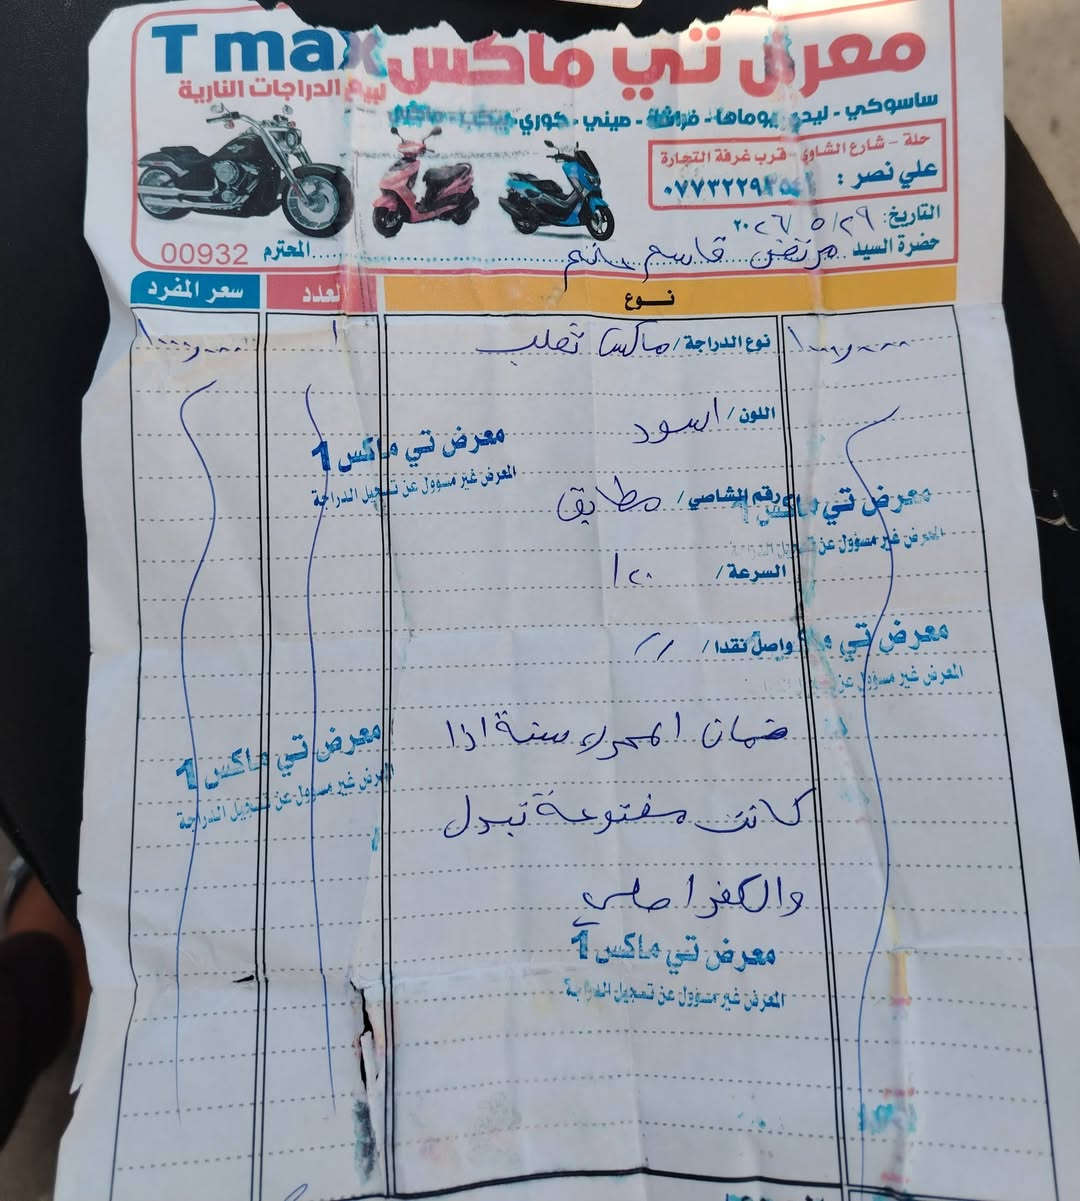 معرض تي ماكس T max
لبيع الدراجات النارية
ساسوكي - ليدي - يوماها - فراشة - صيني - كوري
حلة - شارع الشاوي - قرب غرفة التجارة
علي نصر :
التاريخ: ٢٩/ ٥/ ٢٠٢٦
حضرة السيد مرتضى قاسم المحترم
00932
نوع العدد سعر المفرد
نوع الدراجة / ماكس ثعلب ١
اللون / اسود
معرض تي ماكس 1
المعرض غير مسؤول عن تسجيل الدراجة
رقم الشاصي / مطابق
معرض تي ماكس 1
المعرض غير مسؤول عن تسجيل الدراجة
السرعة / ١٢٠
واصل نقدا / //
معرض تي ماكس 1
المعرض غير مسؤول عن
ضمان المحرك سنة اذا
معرض تي ماكس 1
المعرض غير مسؤول عن تسجيل الدراجة
كانت مفتوحة تبدل
والكفر اصلي
معرض تي ماكس 1
المعرض غير مسؤول عن تسجيل الدراجة